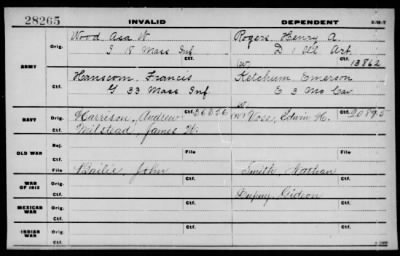 28265 INVALID DEPENDENT
ARMY
Orig. Wood Asa W. Rogers Henry A.
I 18 Mass Inf D 1 Ill Art.
Ctf. (W) Ctf. 13862
Orig. Hanscom. Francis Ketchum Emerson
G 33 Mass Inf E 3 Mo Cav
Ctf. Ctf.
NAVY
Orig. Harrison, Andrew Ctf. (W) Voss, Edwin H. Ctf.
Ctf. Milstead, James W.
OLD WAR
Rej.
Ctf. File File
WAR OF 1812
Orig. Bailis John Smith,
Ctf. Dupuy Gideon
MEXICAN WAR
Orig.
Ctf.
INDIAN WAR
Orig.
Ctf.